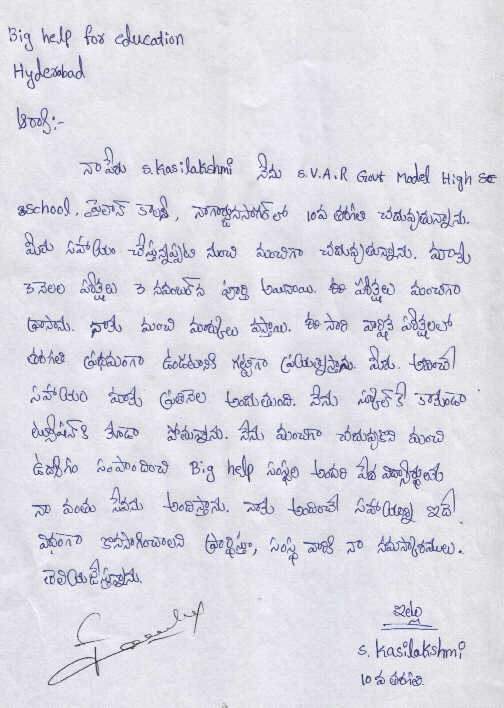 Big help for education
Hyderabad
నా పేరు S. Kasilakshmi నేను S.V.A.R Govt Model High Sc
School, పైలాన్ కాలనీ, నాగార్జునసాగర్ లో 10వ తరగతి చదువుతున్నాను.
మీరు సహాయం చేస్తున్నప్పటి నుంచి మంచిగా చదువుతున్నాను. మాకు
3 నెలల పరీక్షలు 3 నవంబర్ న పూర్తి అయినాయి. ఈ పరీక్షలు మంచిగా
వ్రాసాను. నాకు మంచి మార్కులు వస్తాయి. ఈ సారి వార్షిక పరీక్షలలో
తరగతి ప్రథమంగా ఉండటానికి గట్టిగా ప్రయత్నిస్తాను. మీరు అందించే
సహాయం మాకు ప్రతినెల అందుతుంది. నేను స్కూల్ కే కాకుండా
ట్యూషన్ కి కూడా పోతున్నాను. నేను మంచిగా చదువుకుని మంచి
ఉద్యోగం సంపాదించి Big help సంస్థల అందరి పేద విద్యార్థులకు
నా వంతు సేవను అందిస్తాను. నాకు అందించే సహాయాన్ని ఇదే
విధంగా కొనసాగించాలని ప్రార్థిస్తూ, సంస్థ వారికి నా నమస్కారములు.
తెలియజేస్తున్నాను.
ఇట్లు
S. Kasilakshmi
10 వ తరగతి.